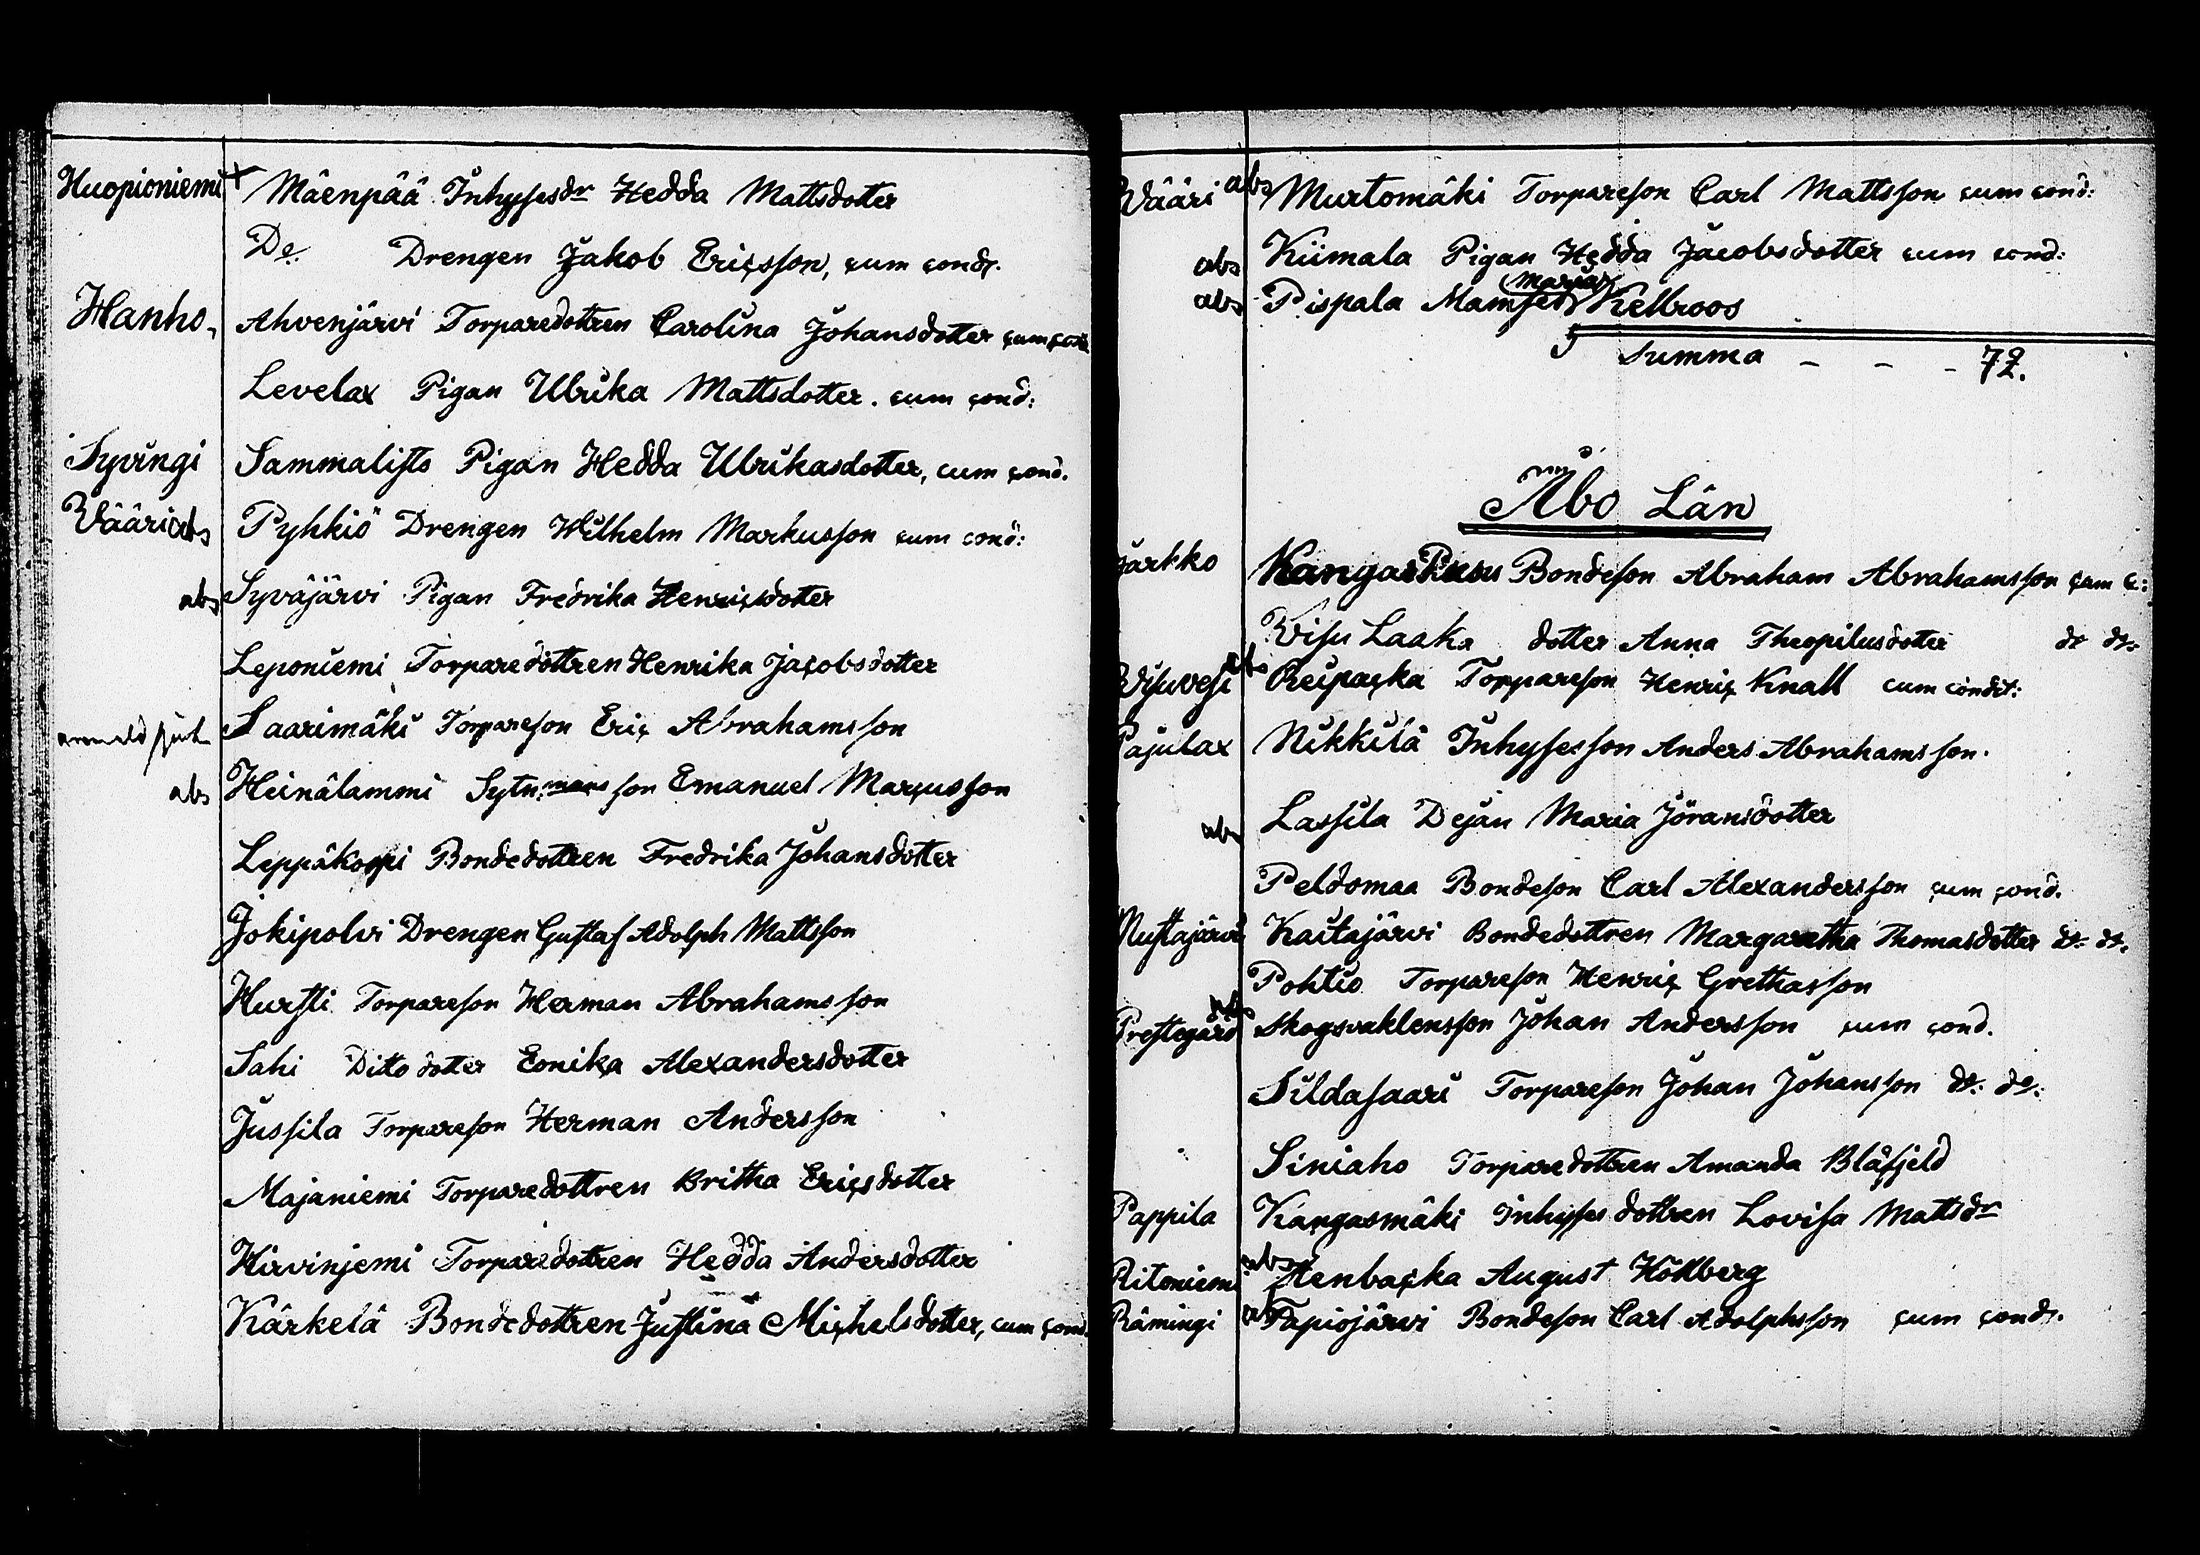 Huopioniemi + Mäenpää Inhysesdr Hedda Mattsdotter
Do Drengen Jakob Ericsson, cum cond.
Hanho, Ahvenjärvi Torparedottren Carolina Johansdotter cum cond
Levelax Pigan Ulrika Mattsdotter. cum cond:
Syvingi Sammalisto Pigan Hedda Ulrikasdotter, cum cond.
Vääri abs Pyhkiö Drengen Wilhelm Markusson cum cond:
abs Syväjärvi Pigan Fredrika Henricsdotter
Leponiemi Torparedottren Henrika Jacobsdotter
Saarimäki Torpareson Eric Abrahamsson
abs Heinälammi Sytn:mans son Emanuel Marcusson
Leppäkoski Bondedottren Fredrika Johansdotter
Jokipolvi Drengen Gustaf Adolph Mattsson
Hursti Torpareson Herman Abrahamsson
Sahi Ditto dotter Eonika Alexandersdotter
Jussila Torpareson Herman Andersson
Majaniemi Torparedottren Britha Ericsdotter
Hirvinjemi Torparedottren Hedda Andersdotter
Kärkelä Bondedottren Justina Michelsdotter, cum cond.
Vääri abs Murtomäki Torpareson Carl Mattsson cum cond:
abs Kiimala Pigan Hedda Jacobsdotter cum cond:
abs Pispala Mamsell (Maria) Kellroos
Summa - - - 72.
Åbo Län
Jarkko Kangas Bondeson Abraham Abrahamsson cum c:
Visu Laaka dotter Anna Theopilusdotter do do
abs Reipacka Torpareson Henric Knall cum condit:
Pajulax Nikkilä Inhysesson Anders Abrahamsson.
abs Lassila Dejan Maria Jöransdotter
Peldomaa Bondeson Carl Alexandersson cum cond.
Mustajärvi Kaitajärvi Bondedottren Margaretha Thomasdotter do do.
Pohtio Torpareson Henric Grethasson
Prestegård abs Skogsvaktensson Johan Andersson cum cond.
Sildasaari Torpareson Johan Johansson do. do:
Siniaho Torparedottren Amanda Blåfjeld
Pappila Kangasmäki Inhyses dottren Lovisa Mattsdr
Ritoniemi abs Stenbacka August Hökberg
Rämingi abs Tapiojärvi Bondeson Carl Adolphsson cum cond.